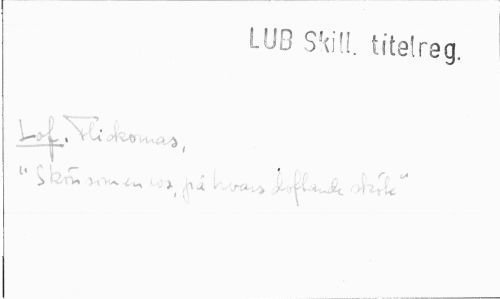 LUB Skill. titelreg.
Lof. Flickornas,
"Skön som en ros, på hvars doftande sköte"